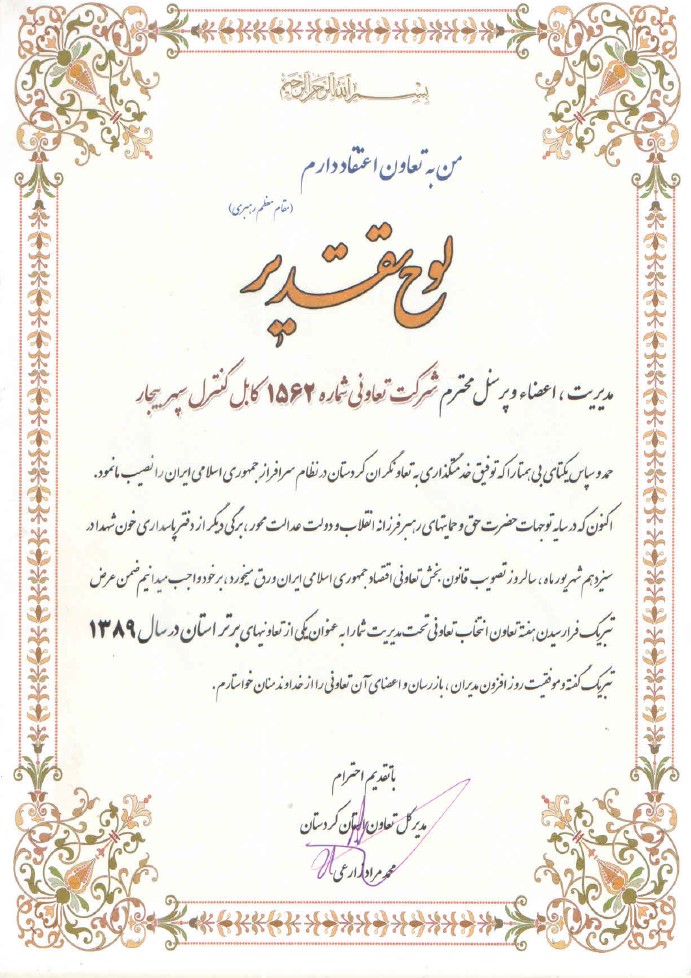 بسم الله الرحمن الرحیم
من به تعاون اعتقاد دارم
(مقام معظم رهبری)
لوح تقدیر
مدیریت ، اعضاء و پرسنل محترم شرکت تعاونی شماره ۱۵۶۲ کابل کنترل سپهر بیجار
حمد و سپاس یکتای بی همتا را که توفیق خدمتگذاری به تعاونگران کردستان در نظام سرافراز جمهوری اسلامی ایران را نصیب مانمود.
اکنون که در سایه توجهات حضرت حق و حمایتهای رهبر فرزانه انقلاب و دولت عدالت محور ، برگی دیگر از دفتر پاسداری خون شهدا در
سیزدهم شهریور ماه ، سالروز تصویب قانون بخش تعاونی اقتصاد جمهوری اسلامی ایران ورق میخورد ، بر خود واجب میدانیم ضمن عرض
تبریک فرا رسیدن هفته تعاون انتخاب تعاونی تحت مدیریت شما را به عنوان یکی از تعاونیهای برتر استان در سال ۱۳۸۹
تبریک گفته و موفقیت روز افزون مدیران ، بازرسان و اعضای آن تعاونی را از خداوند منان خواستارم .
با تقدیم احترام
مدیر کل تعاون استان کردستان
محمد مراد زارعی